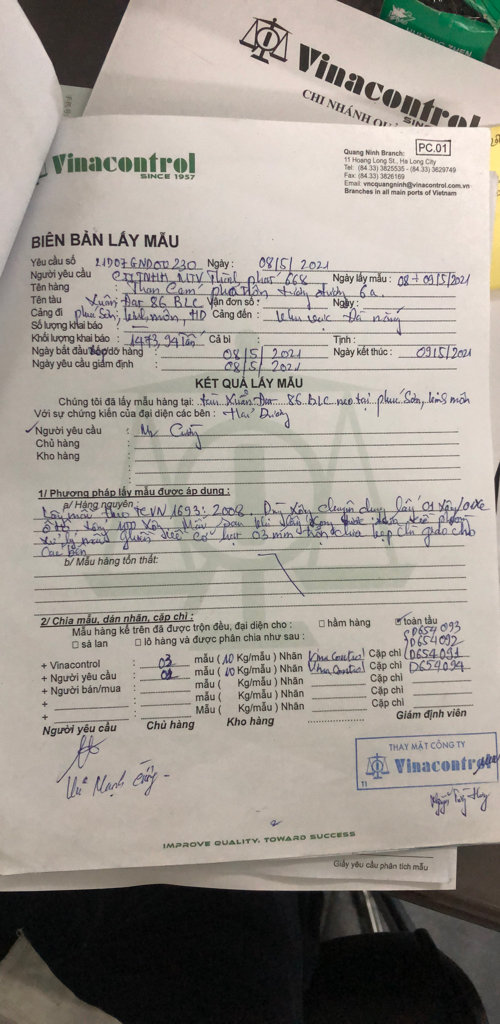 Vinacontrol
CHI NHÁNH
Vinacontrol
SINCE 1957
Quang Ninh Branch: PC.01
11 Hoang Long St., Ha Long City
Tel: (84.33) 3625535 - (84.33) 3629749
Fax: (84.33) 3826169
Email: vncquangninh@vinacontrol.com.vn
Branches in all main ports of Vietnam
BIÊN BẢN LẤY MẪU
Yêu cầu số 21D07GND0D230 Ngày: 08/5/2021
Người yêu cầu : CTTNHH MTV Thịnh phát 668 Ngày lấy mẫu: 08+09/5/2021
Tên hàng : Than Cám phối trộn tương đương 6a.
Tên tàu : Xuân Đạt 86 BLC Vận đơn số : Ngày:
Cảng đi : phú Sơn, kinh môn, HD Cảng đến : khu vực Đà nẵng
Số lượng khai báo :
Khối lượng khai báo : 1473,94 Tấn Cả bì : Tịnh :
Ngày bắt đầu xếp/dỡ hàng : 08/5/2021 Ngày kết thúc : 09/5/2021
Ngày yêu cầu giám định : 08/5/2021
KẾT QUẢ LẤY MẪU
Chúng tôi đã lấy mẫu hàng tại: tàu Xuân Đạt 86 BLC neo tại phú Sơn, kinh môn
Với sự chứng kiến của đại diện các bên : Hải Dương
Người yêu cầu : Mr Cường
Chủ hàng :
Kho hàng :
1/ Phương pháp lấy mẫu được áp dụng :
a/ Hàng nguyên :
Lấy mẫu theo TCVN 1693: 2008. Dùng Xẻng chuyên dụng lấy 01 Xẻng/01 Xe
ô tô Mẫu sau khi lấy xong được
xử lý mẫu nghiền cỡ hạt 03 mm giao cho
Các bên
b/ Mẫu hàng tổn thất:
2/ Chia mẫu, dán nhãn, cặp chì :
Mẫu hàng kể trên đã được trộn đều, đại diện cho : □ hầm hàng ☑ toàn tàu
□ sà lan □ lô hàng và được phân chia như sau :
D654093
D654092
+ Vinacontrol : 03 mẫu ( 10 Kg/mẫu ) Nhãn Vinacontrol Cặp chì D654091
+ Người yêu cầu : 01 mẫu ( 10 Kg/mẫu ) Nhãn Vinacontrol Cặp chì D654094
+ Người bán/mua : mẫu ( Kg/mẫu ) Nhãn Cặp chì
+ : mẫu ( Kg/mẫu ) Nhãn Cặp chì
+ : Mẫu ( Kg/mẫu ) Nhãn Cặp chì
Người yêu cầu Chủ hàng Kho hàng Giám định viên
Vũ Mạnh Cường
THAY MẶT CÔNG TY
Vinacontrol
11
IMPROVE QUALITY, TOWARD SUCCESS
Giấy yêu cầu phân tích mẫu